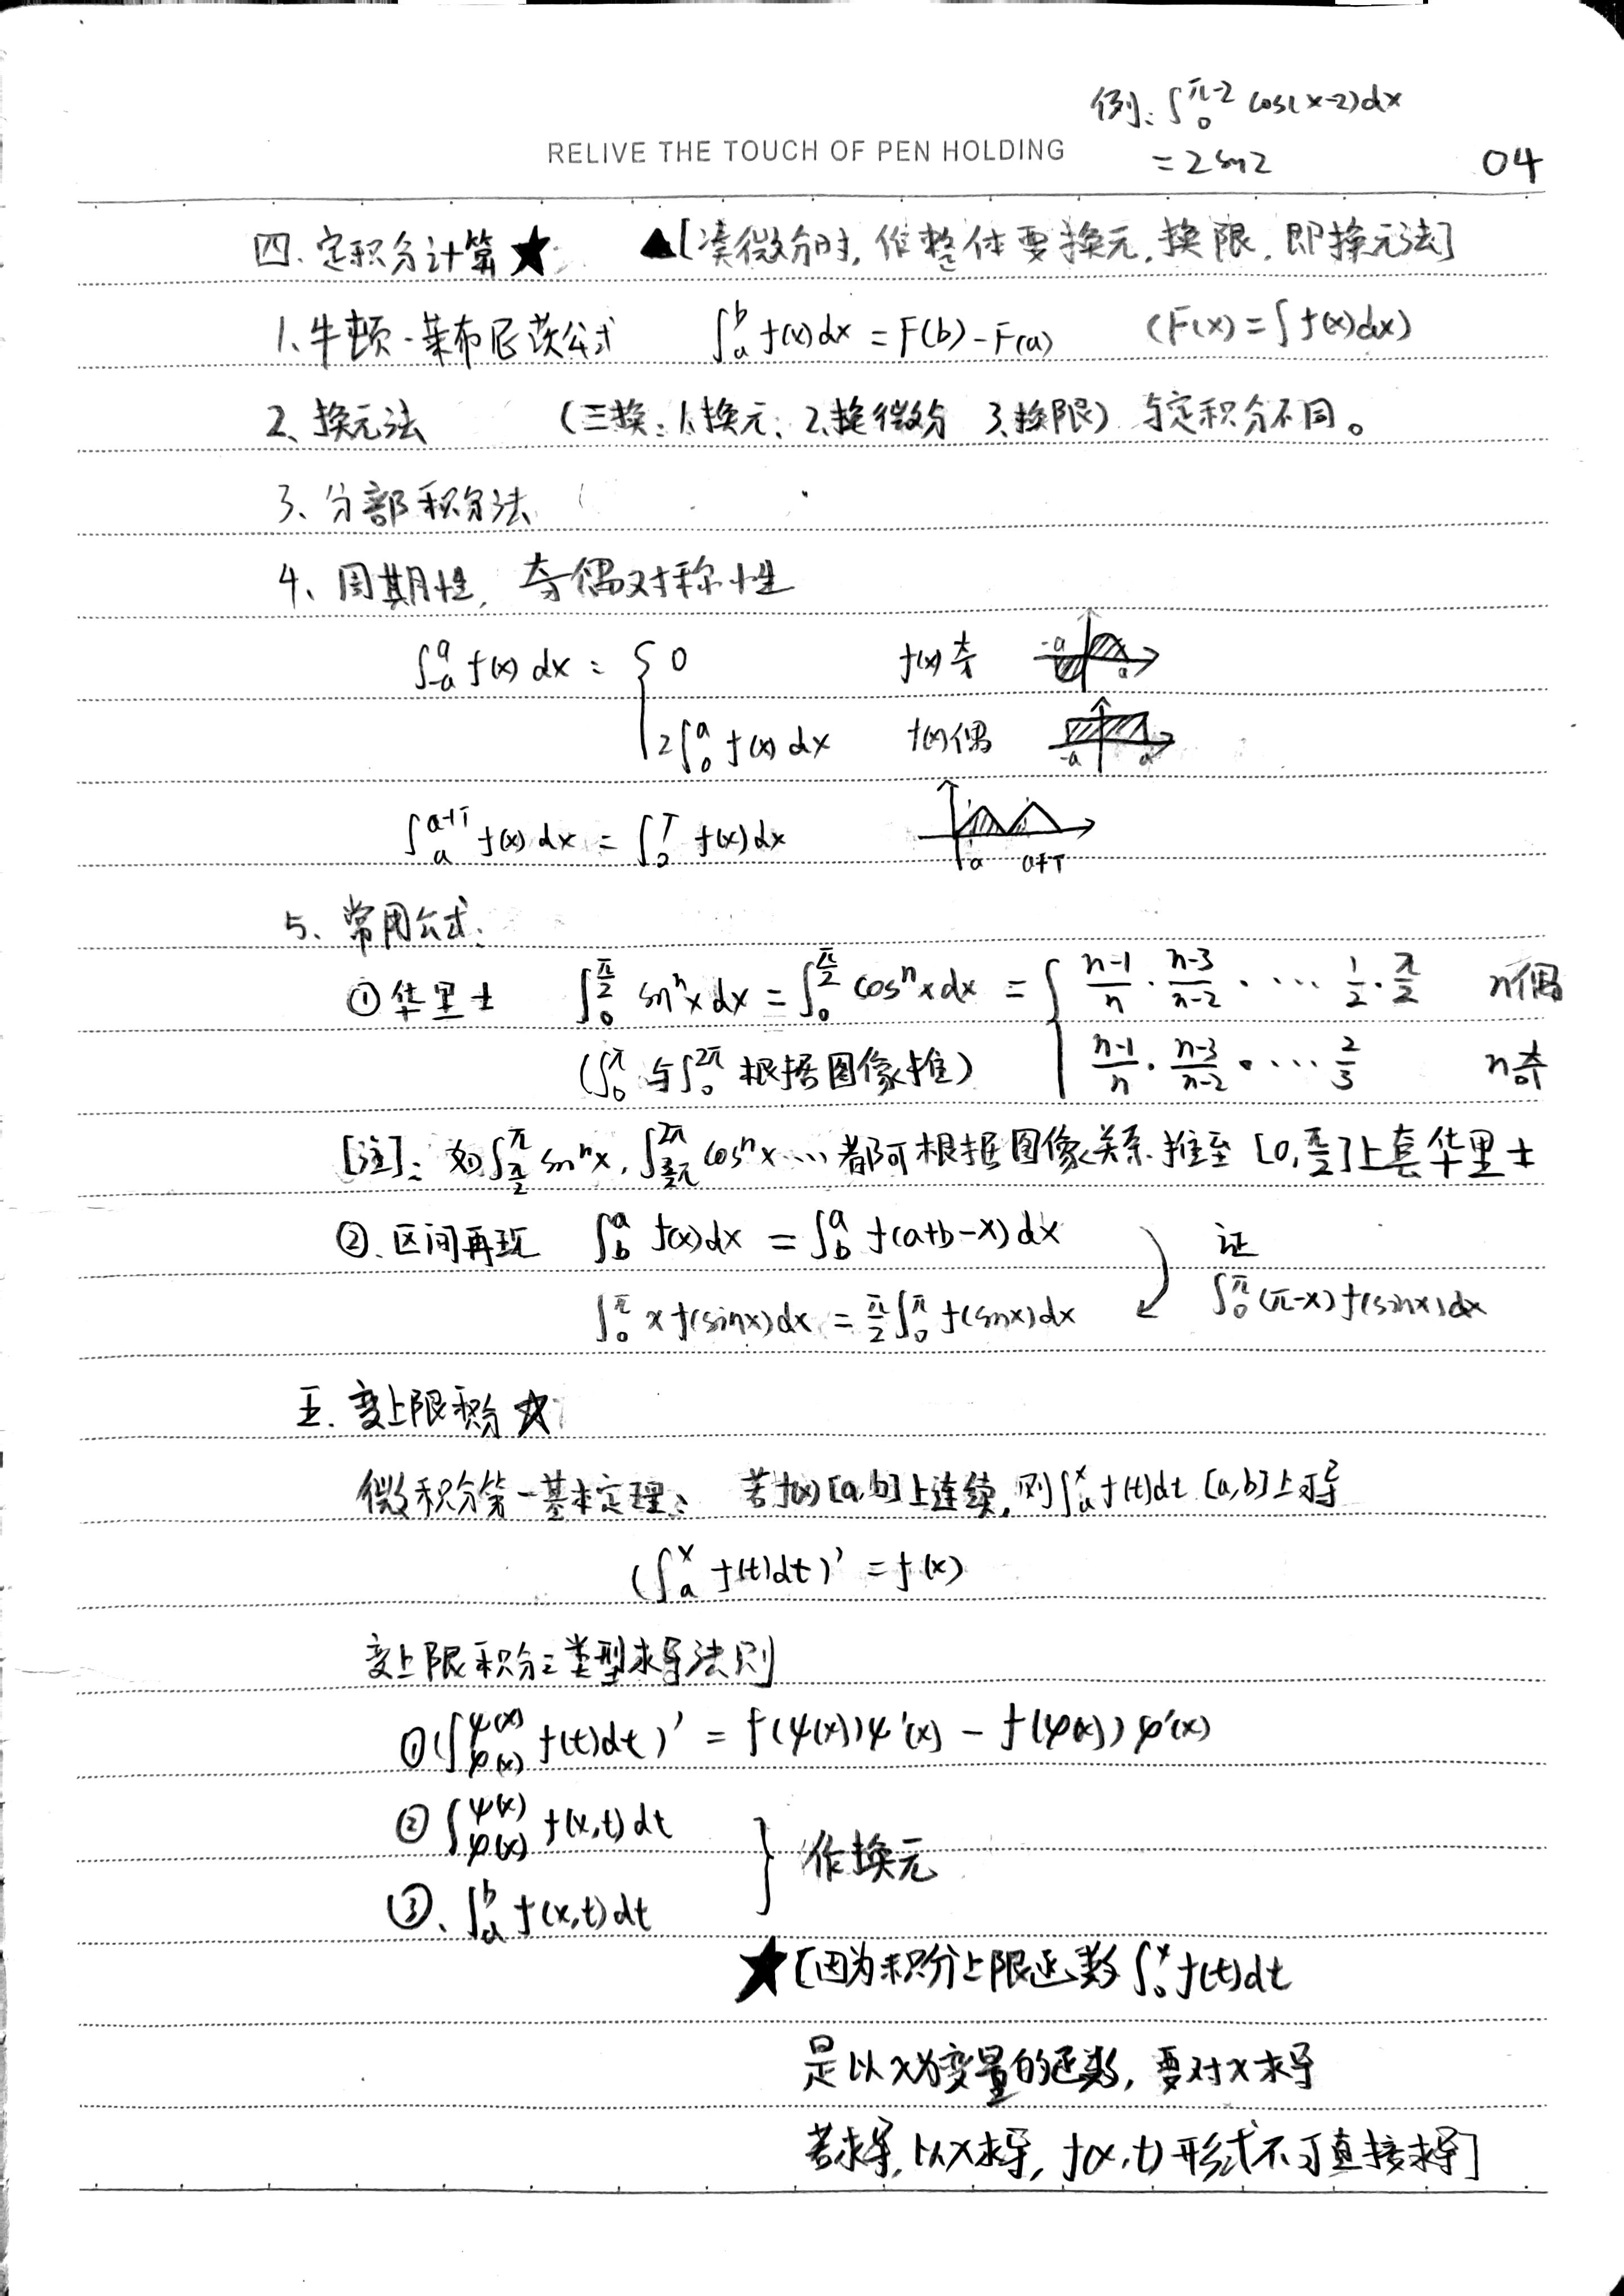 例: ∫₀^{π-2} cos(x-2)dx
RELIVE THE TOUCH OF PEN HOLDING
= 2sin2
04
四. 定积分计算★ ▲[凑微分时, 作整体要换元, 换限. 即换元法]
1、牛顿-莱布尼茨公式 ∫_a^b f(x)dx = F(b)-F(a) (F(x)=∫f(x)dx)
2、换元法 (三换: 1、换元; 2、换微分 3、换限) 与定积分不同。
3、分部积分法
4、周期性, 奇偶对称性
∫_{-a}^a f(x)dx = { 0 f(x)奇 -a a
2∫_0^a f(x)dx f(x)偶 -a a
∫_a^{a+T} f(x)dx = ∫_0^T f(x)dx a a+T
5、常用公式:
①华里士 ∫_0^{π/2} sin^n x dx = ∫_0^{π/2} cos^n x dx = { (n-1)/n · (n-3)/(n-2) · ⋯ 1/2 · π/2 n偶
(∫_0^π 与 ∫_0^{2π} 根据图像推) (n-1)/n · (n-3)/(n-2) · ⋯ 2/3 n奇
[注]: 如∫_{π/2}^π sin^n x, ∫_{3/2π}^{2π} cos^n x ⋯ 都可根据图像关系推至 [0, π/2]上套华里士
②、区间再现 ∫_b^a f(x)dx = ∫_b^a f(a+b-x)dx 证
∫_0^π x f(sinx)dx = π/2 ∫_0^π f(sinx)dx ∫_0^π (π-x)f(sinx)dx
五. 变上限积分☆
微积分第一基本定理: 若f(x)[a,b]上连续, 则∫_a^x f(t)dt [a,b]上可导
(∫_a^x f(t)dt)' = f(x)
变上限积分三类型求导法则
①(∫_{φ(x)}^{ψ(x)} f(t)dt)' = f(ψ(x))ψ'(x) - f(φ(x))φ'(x)
② ∫_{φ(x)}^{ψ(x)} f(x,t)dt
} 作换元
③、∫_a^b f(x,t)dt
★[因为积分上限函数∫_0^x f(t)dt
是以x为变量的函数, 要对x求导
若求导, 以x求导, f(x,t)形式不可直接求导]